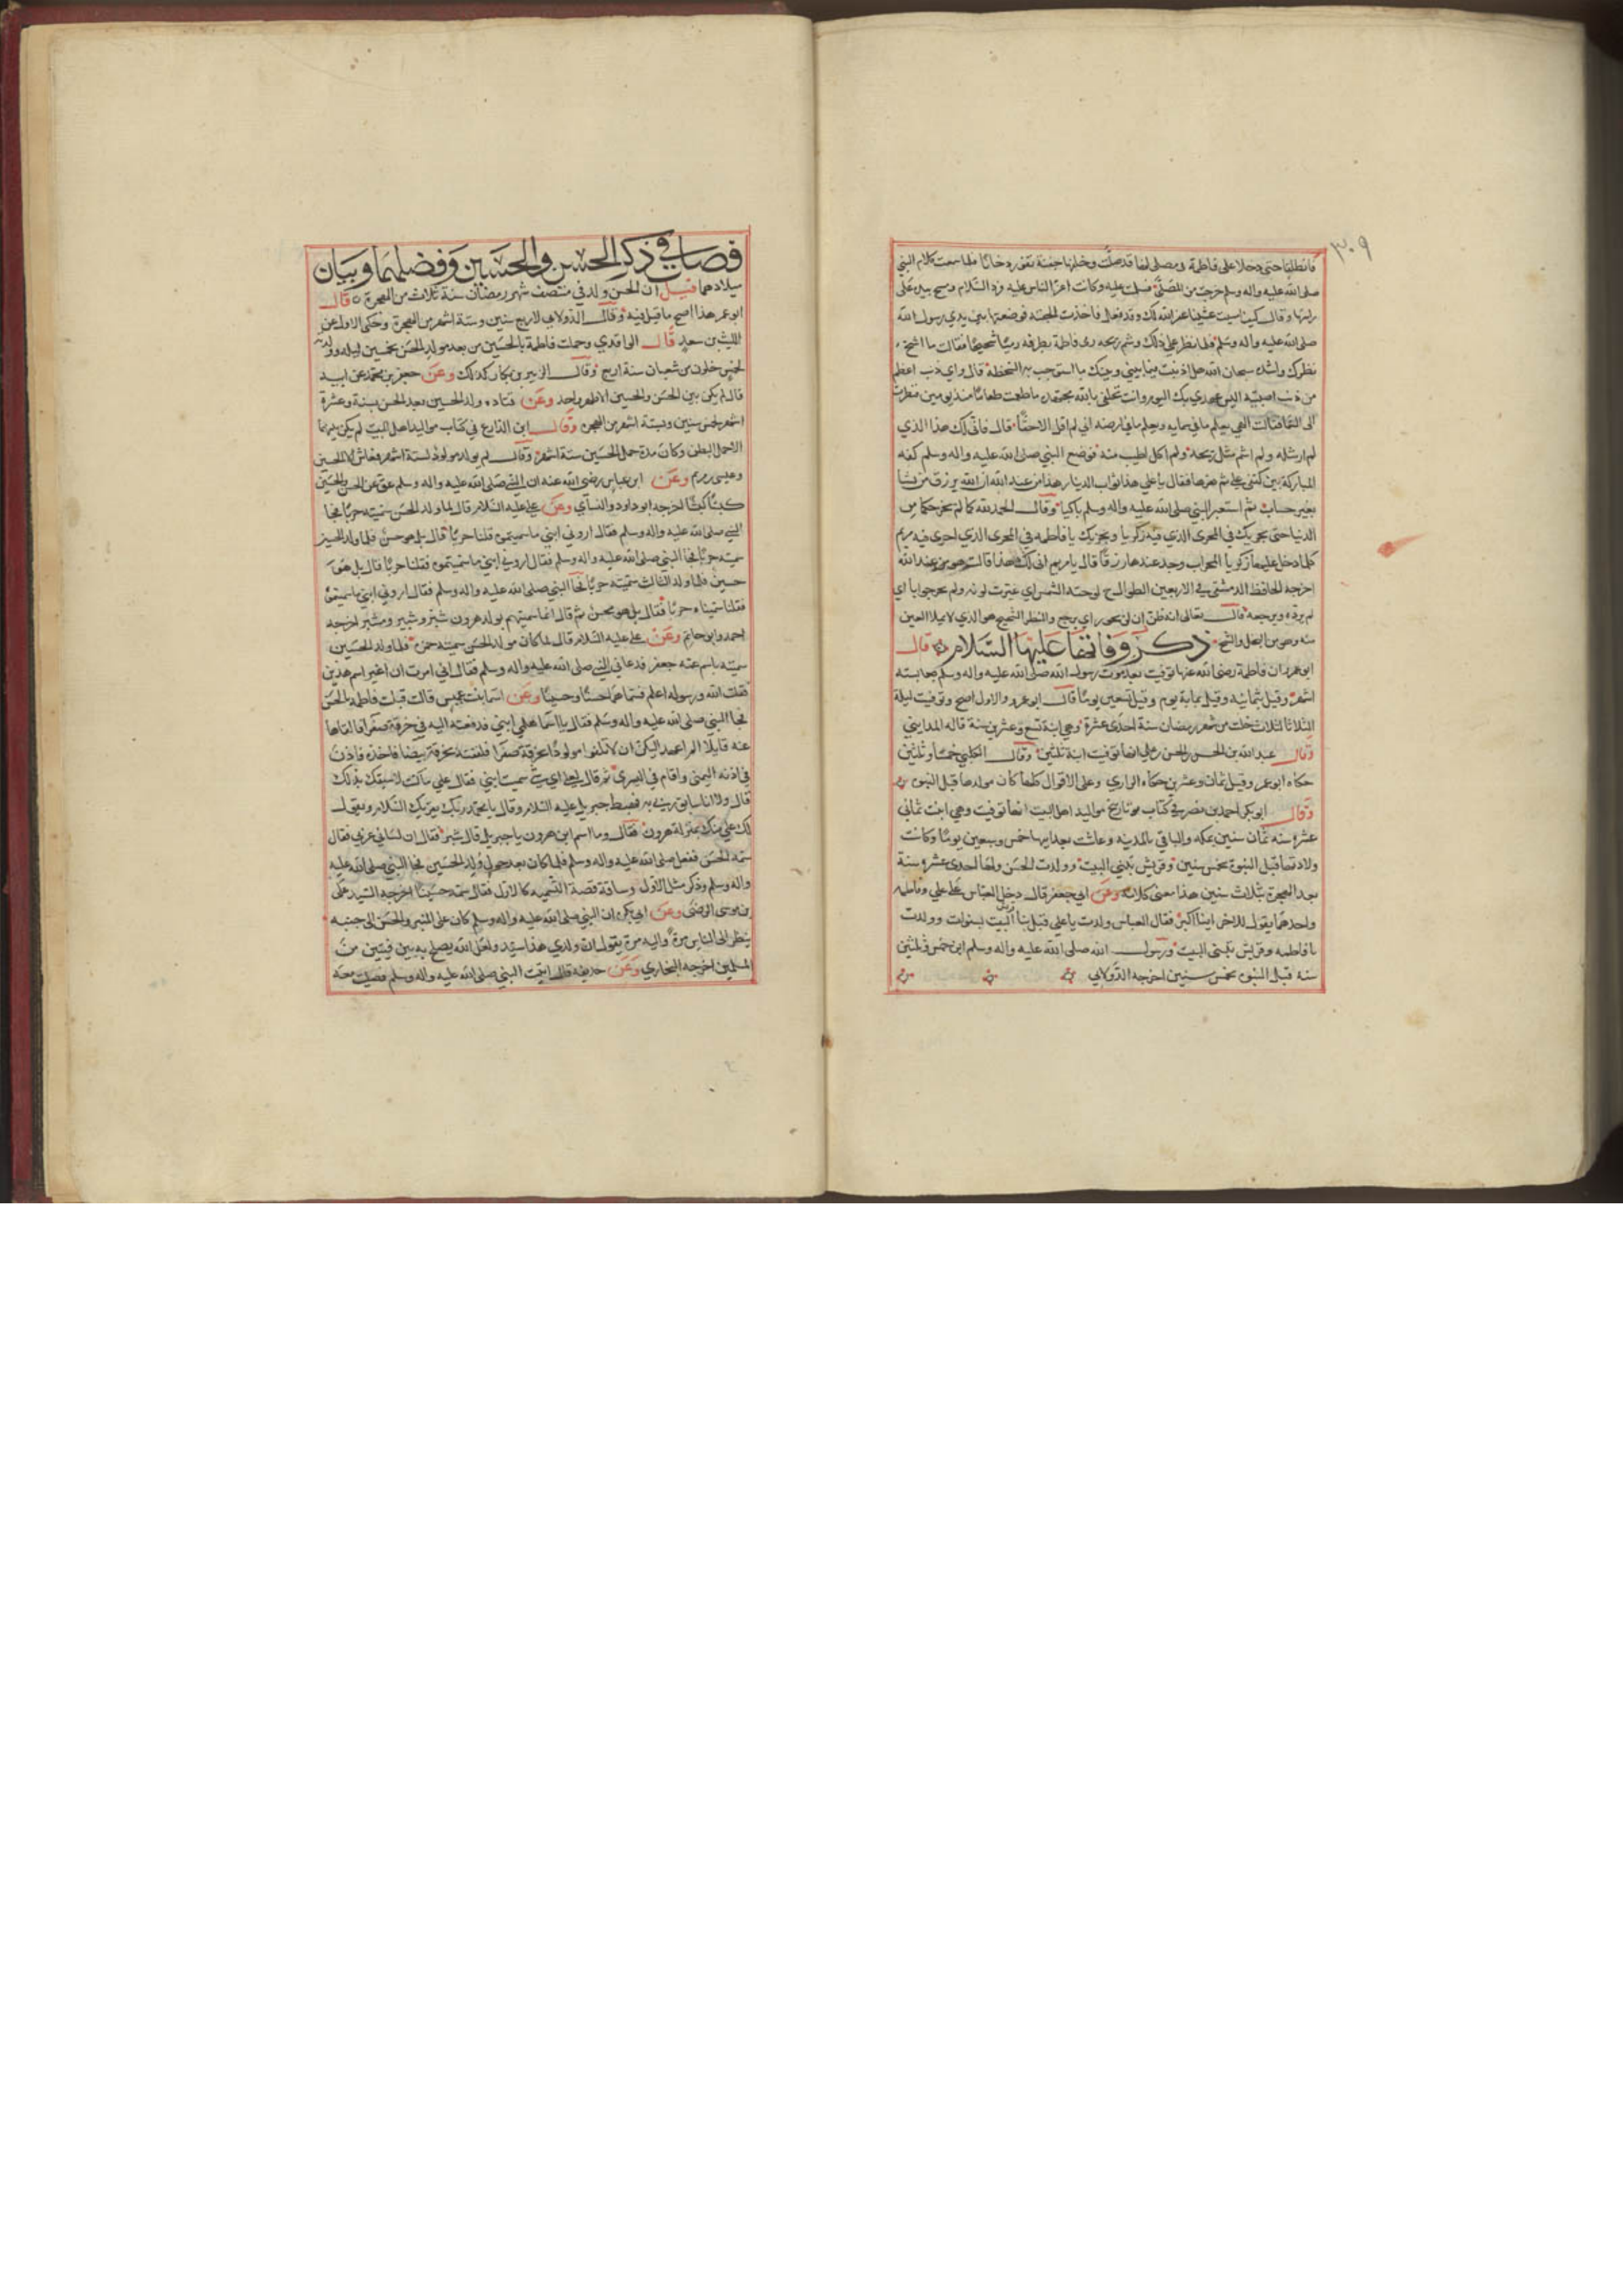 ٣٠٩
فانطلقا حتى دخلا على فاطمة في مصلى لها قد صلت وخلفها جفنة تفور دخانا فلما سمعت كلام النبي
صلى الله عليه واله وسلم خرجت من المصلى فسلمت عليه وكانت اعز الناس عليه فرد السلام ومسح بيده على
راسها وقال كيف امسيت عشينا غفر الله لك وقد فعل فاخذت الجفنة فوضعتها بين يدي رسول الله
صلى الله عليه واله وسلم فلما نظر علي ذلك وشم ريحه رمى فاطمة بطرفه رميا شحيحا فقالت ما اشح
نظرك واشده سبحان الله هل اذنبت فيما بيني وبينك ما استوجب به السخطة قال واي ذنب اعظم
من ذنب اصبتيه اليس عهدي بك اليوم وانت تحلفي بالله مجتهدة ما طعمت طعاما منذ يومين فنظرت
الى السما فقالت الهي يعلم ما في سمايه ويعلم ما في ارضه اني لم اقل الا حقا قال فاني لك هذا الذي
لم ار مثله ولم اشم مثل ريحه ولم اكل اطيب منه فوضع النبي صلى الله عليه واله وسلم كفه
المباركة بين كتفي علي ثم هزها فقال يا علي هذا ثواب الدينار هذا من عند الله ان الله يرزق من يشا
بغير حساب ثم استعبر النبي صلى الله عليه واله وسلم باكيا وقال الحمد لله كما لم يخرجكما من
الدنيا حتى يجريك في المجرى الذي فيه زكريا ويجريك يا فاطمه في المجرى الذي اجرى فيه مريم
كلما دخل عليها زكريا المحراب وجد عندها رزقا قال يا مريم انى لك هذا قالت هو من عند الله
اخرجه الحافظ الدمشقي في الاربعين الطوال لوحته الشمس اي غيرت لونه ولم يحر جوابا اي
لم يرده ويرجعه قال تعالى انه ظن ان لن يحور اي يرجع والنظر الشحيح هو الذي لا يملا العين
منه وهو من البخل والشح ذكر وفاتها عليها السلام قال
ابو عمر ان فاطمة رضى الله عنها توفيت بعد موت رسول الله صلى الله عليه واله وسلم بستة
اشهر وقيل بثمانية وقيل بماية يوم وقيل بسبعين يوما قال ابو عمر والاول اصح وتوفيت ليلة
الثلاثا لثلاث خلت من شهر رمضان سنة احدى عشرة وهي ابنة تسع وعشرين سنة قاله المدايني
وقال عبد الله بن الحسن بن الحسن بن علي انها توفيت ابنة ثلثين وقال الكلبي خمسا وثلثين
حكاه ابو عمر وقيل ثمان وعشرين حكاه الرازي وعلى الاقوال كلها كان مولدها قبل النبوة
وقال ابو بكر احمد بن نصر في كتاب تاريخ مواليد اهل البيت انها توفيت وهي ابنت ثماني
عشرة سنه ثمان سنين بمكه والباقي بالمدينه وعاشت بعد ابيها خمس وسبعين يوما وكانت
ولادتها قبل النبوة بخمس سنين وقريش تبني البيت وولدت الحسن ولها احدى عشرة سنة
بعد الهجرة بثلاث سنين هذا معنى كلامه وعن ابي جعفر قال دخل العباس على علي وفاطمه
واحدهما يقول للاخر اينا اكبر فقال العباس ولدت يا علي قبل بنا البيت بسنوات وولدت
يا فاطمه وقريش تبني البيت ورسول الله صلى الله عليه واله وسلم ابن خمس وثلثين
سنه قبل النبوة بخمس سنين اخرجه الدولابي
فصل في ذكر الحسن والحسين وفضلهما وبيان
ميلادهما قيل ان الحسن ولد في منتصف شهر رمضان سنة ثلاث من الهجرة قال
ابو عمر هذا اصح ما قيل فيه وقال الدولابي لاربع سنين وستة اشهر من الهجرة وحكى الاول عن
الليث بن سعد قال الواقدي وحملت فاطمة بالحسين من بعد مولد الحسن بخمسين ليله وولدته
لخمس خلون من شعبان سنة اربع وقال الزبير بن بكار كذلك وعن جعفر بن محمد عن ابيه
قال لم يكن بين الحسن والحسين الا طهر واحد وعن قتاده ولد الحسين بعد الحسن بسنة وعشرة
اشهر لخمس سنين وستة اشهر من الهجره وقال ابن الذارع في كتاب مواليد اهل البيت لم يكن بينهما
الا حمل البطن وكان مدة حمل الحسين ستة اشهر وقال لم يولد مولود لستة اشهر فعاش الا الحسين
وعيسى بن مريم وعن ابن عباس رضي الله عنه ان النبي صلى الله عليه واله وسلم عق عن الحسن والحسين
كبشا كبشا اخرجه ابو داود والنساي وعن علي عليه السلام قال لما ولد الحسن سميته حربا فجا
النبي صلى الله عليه واله وسلم فقال اروني ابني ما سميتموه قلنا حربا قال بل هو حسن فلما ولد الحسين
سميته حربا فجا النبي صلى الله عليه واله وسلم فقال اروني ابني ما سميتموه فقلنا حربا قال بل هو
حسين فلما ولد الثالث سميته حربا فجا النبي صلى الله عليه واله وسلم فقال اروني ابني ما سميتموه
فقلنا سميناه حربا فقال بل هو محسن ثم قال انما سميتهم بولد هرون شبر وشبير ومشبر اخرجه
احمد وابو حاتم وعن علي عليه السلام قال لما كان مولد الحسن سميته حمزة فلما ولد الحسين
سميته باسم عمه جعفر فدعاني النبي صلى الله عليه واله وسلم فقال اني امرت ان اغير اسم هذين
فقلت الله ورسوله اعلم فسماهما حسنا وحسينا وعن اسما بنت عميس قالت قبلت فاطمه بالحسن
فجا النبي صلى الله عليه واله وسلم فقال يا اسما هلمي ابني فدفعته اليه في خرقة صفرا فالقاها
عنه قايلا الم اعهد اليكن ان لا تلفوا مولودا بخرقة صفرا فلففته بخرقة بيضا فاخذه فاذن
في اذنه اليمنى واقام في اليسرى ثم قال لعلي اي شي سميت ابني فقال علي ما كنت لاسبقك بذلك
قال ولا انا سابق ربي به فهبط جبريل عليه السلام وقال يا محمد ربك يقريك السلام ويقول
لك علي منك بمنزلة هرون فقال وما اسم ابن هرون يا جبريل قال شبر فقال ان لساني عربي فقال
سمه الحسن ففعل صلى الله عليه واله وسلم فلما كان بعد حول ولد الحسين فجا النبي صلى الله عليه
واله وسلم وذكر مثل الاول وساقة قصة التسميه كالاول فقال سمه حسينا اخرجه السيد علي
بن موسى الرضى وعن ابي بكره ان النبي صلى الله عليه واله وسلم كان على المنبر والحسن الى جنبه
ينظر الى الناس مرة واليه مرة يقول ان ولدي هذا سيد ولعل الله يصلح به بين فيتين من
المسلمين اخرجه البخاري وعن حذيفه قال اتيت النبي صلى الله عليه واله وسلم فصليت معه